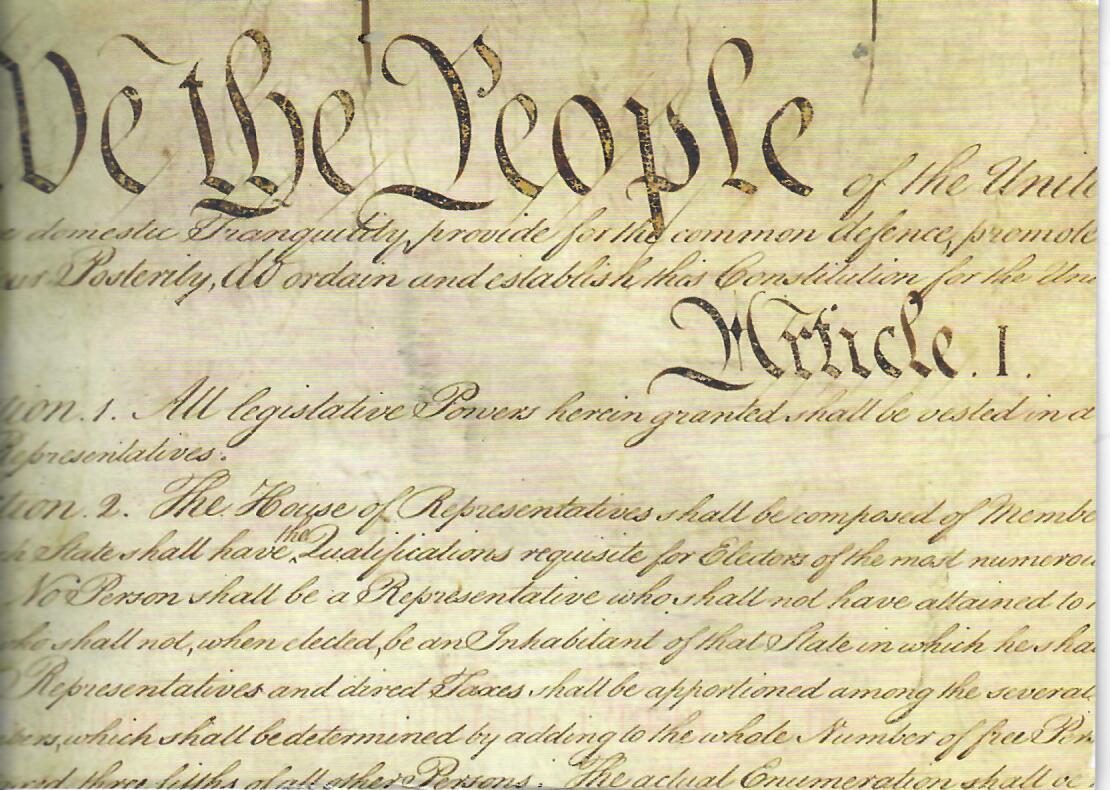 We the People of the Unit
e domestic Tranquility, provide for the common defence, promote
our Posterity, do ordain and establish this Constitution for the Un
Article. I.
tion. 1. All legislative Powers herein granted shall be vested in a
Representatives.
tion. 2. The House of Representatives shall be composed of Membe
ch State shall have the Qualifications requisite for Electors of the most numerou
No Person shall be a Representative who shall not have attained to
who shall not, when elected, be an Inhabitant of that State in which he sha
Representatives and direct Taxes shall be apportioned among the several
bers, which shall be determined by adding to the whole Number of free Per
three fifths of all other Persons. The actual Enumeration shall be